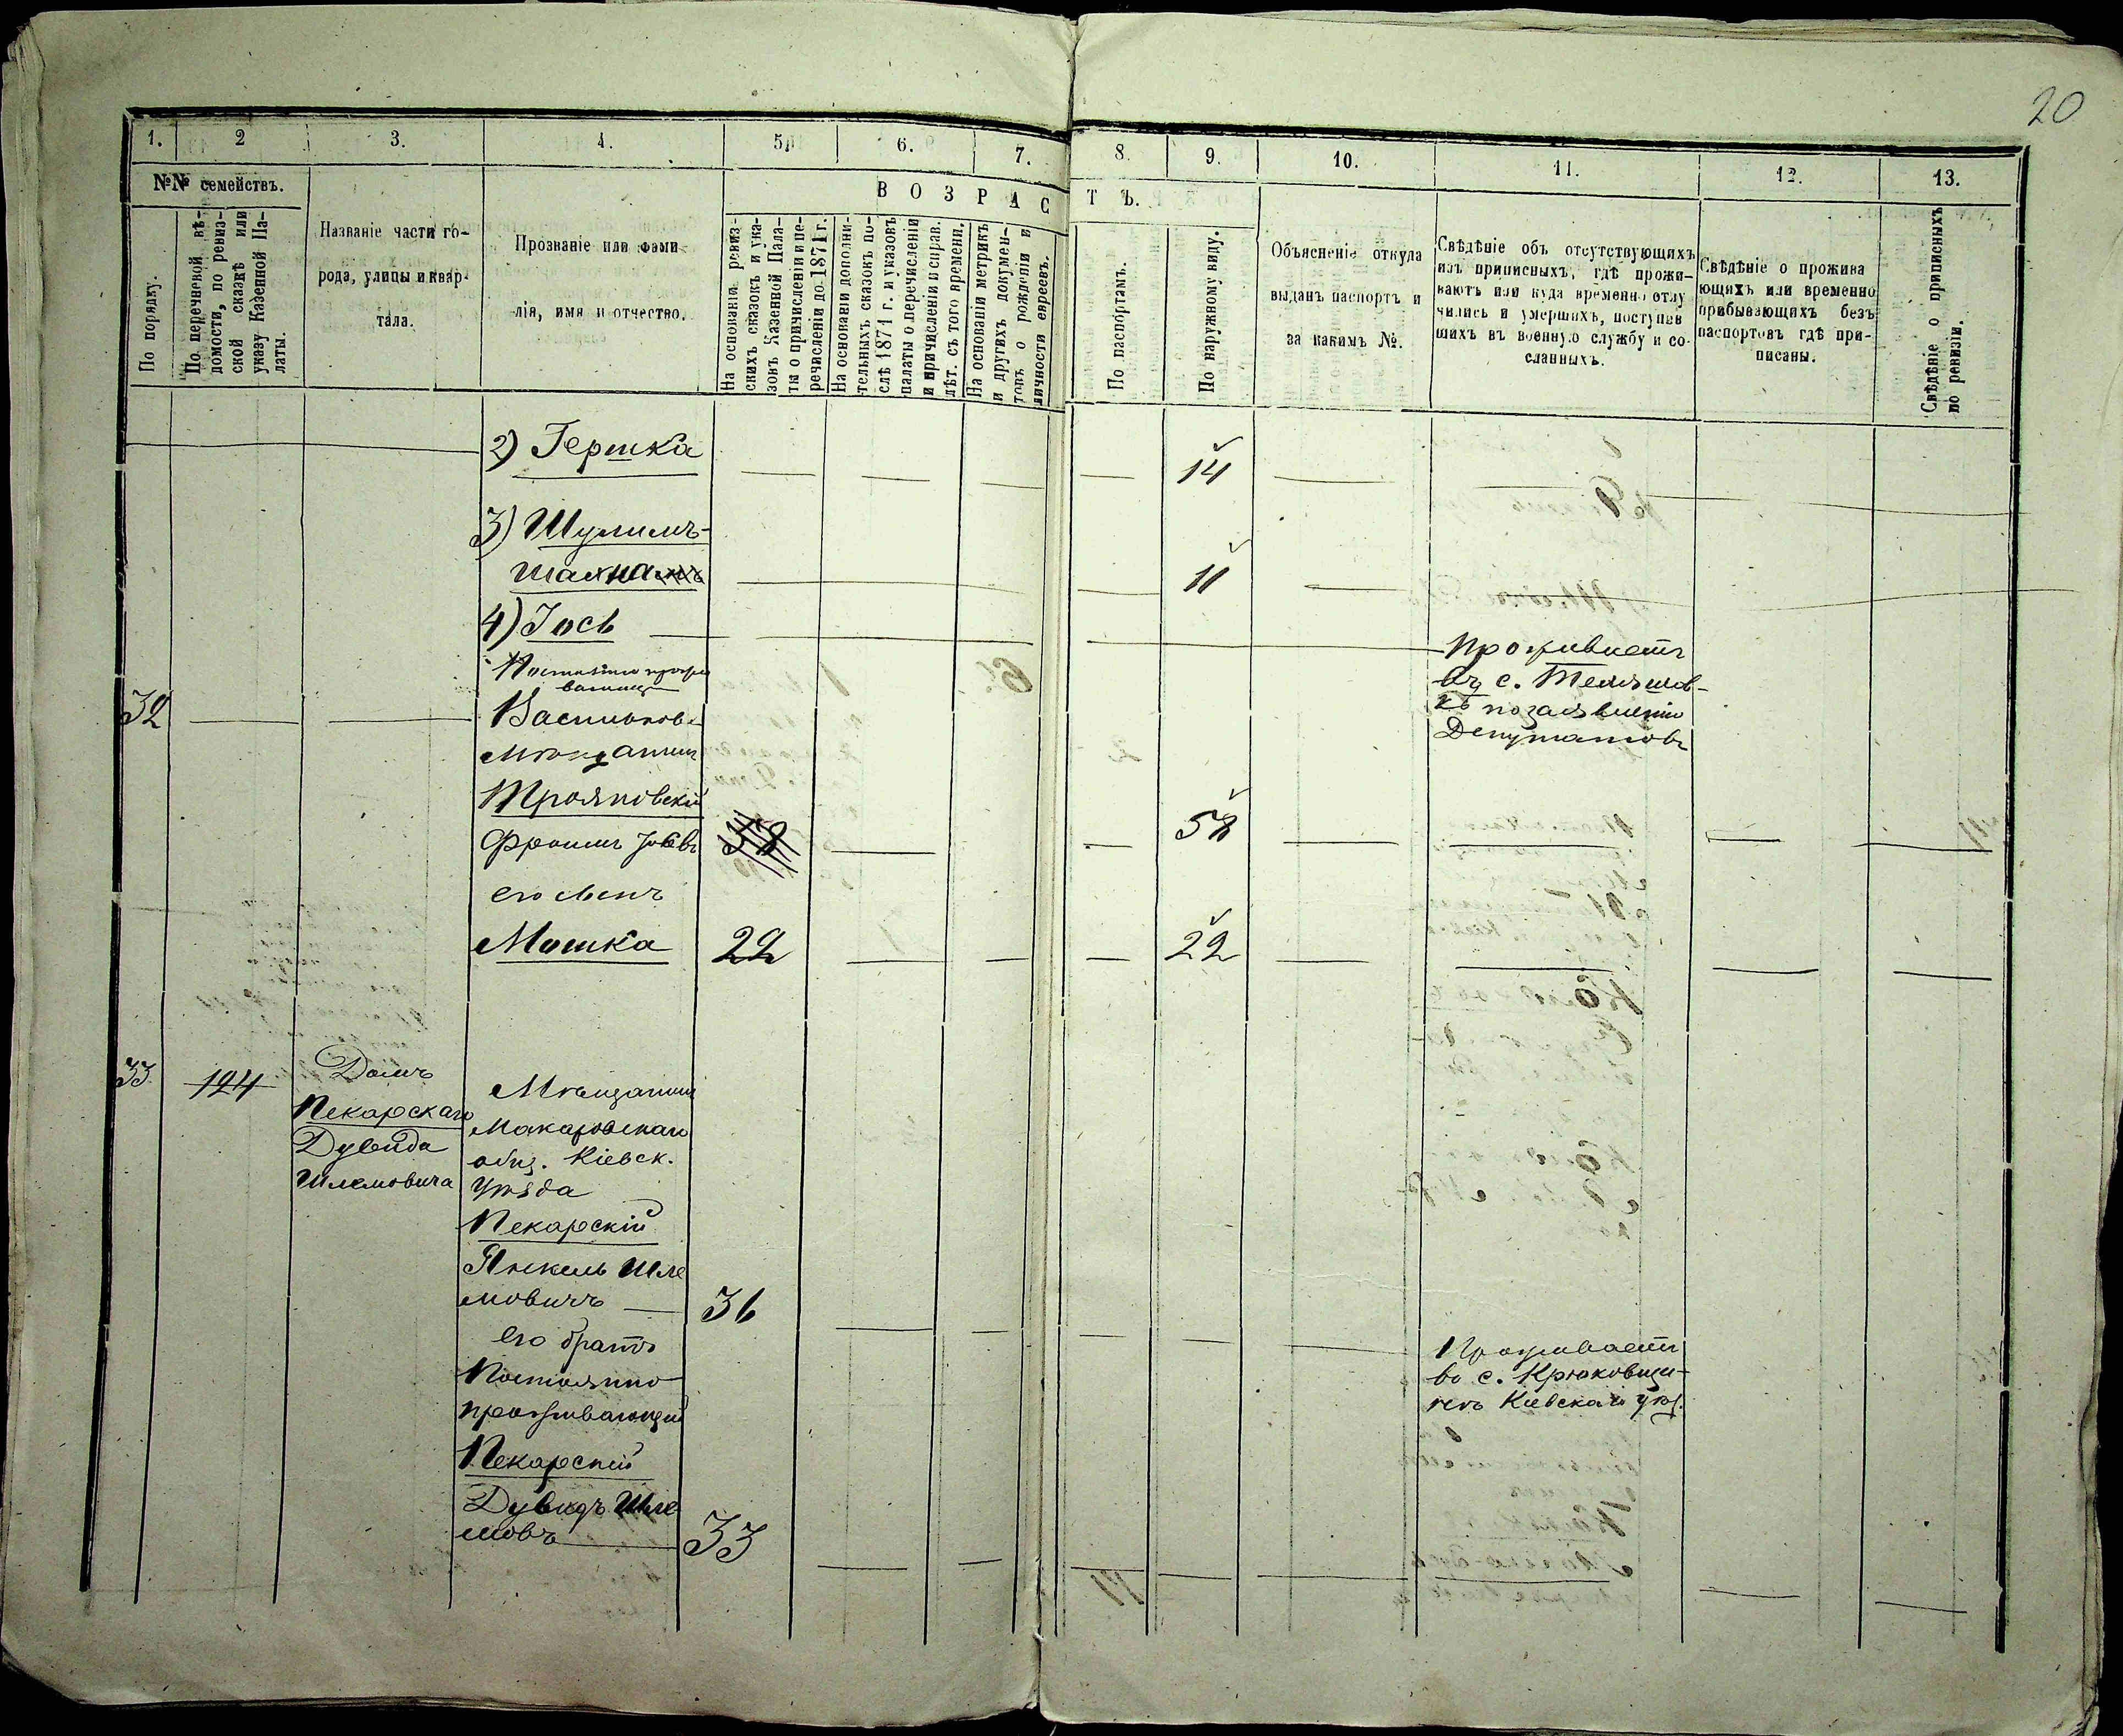 20
1. 2 3. 4. 5. 6. 7. 8. 9. 10. 11. 12. 13.
№№ семействъ.
ВОЗРАСТЪ.
По порядку.
По перечневой вѣ-
домости, по ревиз-
ской сказкѣ или
указу Казенной Па-
латы.
Названіе части го-
рода, улицы и квар-
тала.
Прозваніе или фами-
лія, имя и отчество.
На основаніи ревиз-
скихъ сказокъ и ука-
зовъ Казенной Пала-
ты о причисленіи и пе-
речисленіи до 1871 г.
На основаніи дополни-
тельныхъ сказокъ по-
слѣ 1871 г. и указовъ
палаты о перечисленіи
и причисленіи и справ.
лѣт. съ того времени.
На основаніи метрикъ
и другихъ докумен-
товъ о рожденіи и
личности евреевъ.
По паспортамъ.
По наружному виду.
Объясненіе откуда
выданъ паспортъ и
за какимъ №.
Свѣдѣніе объ отсутствующихъ
изъ приписныхъ, гдѣ прожи-
ваютъ или куда временно отлу
чились и умершихъ, поступив
шихъ въ военную службу и со-
сланныхъ.
Свѣдѣніе о прожива
ющихъ или временно
прибывающихъ безъ
паспортовъ гдѣ при-
писаны.
Свѣдѣніе о приписныхъ
по ревизіи.
2) Гершка 14
3) Шулимъ-
11
4) Іось
Проживаетъ
въ с.
по заявленію
Депутатовъ
32
Трояновскій
58 58
его сынъ
Мошка 22 22
33 124
Домъ
Пекарскаго
Дувида
Шлемовича
Мѣщанинъ
Макаровскаго
общ. Кіевск.
уѣзда
Пекарскій
Янкель Шле
мовичъ 36
его братъ
Постоянно
проживающій
Пекарскій
Дувидъ Шле
мовъ 33
Проживаетъ
во с. Крюковщи-
Кіевскаго уѣз.